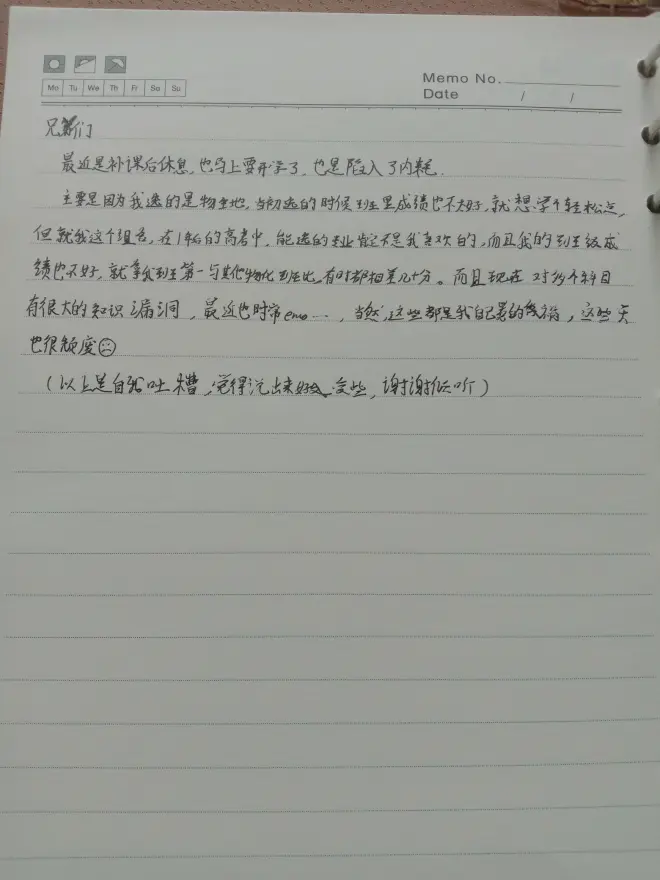 Memo No.
Mo Tu We Th Fr Sa Su
Date / /
兄弟们
最近是补课后休息,也马上要开学了,也是陷入了内耗.
主要是因为我选的是物生地,当初选的时候班里成绩也不太好,就想学个轻松点,
但就我这个组合,在1年后的高考中,能选的专业肯定不是我喜欢的,而且我的班级成
绩也不好,就拿我班第一与其他物化班比,有时都相差几十分。而且现在对多个科目
有很大的知识漏洞,最近也时常emo…,当然,这些都是我自己的,这些天
也很颓废
(以上是自我吐槽,觉得说出来好受些,谢谢倾听)